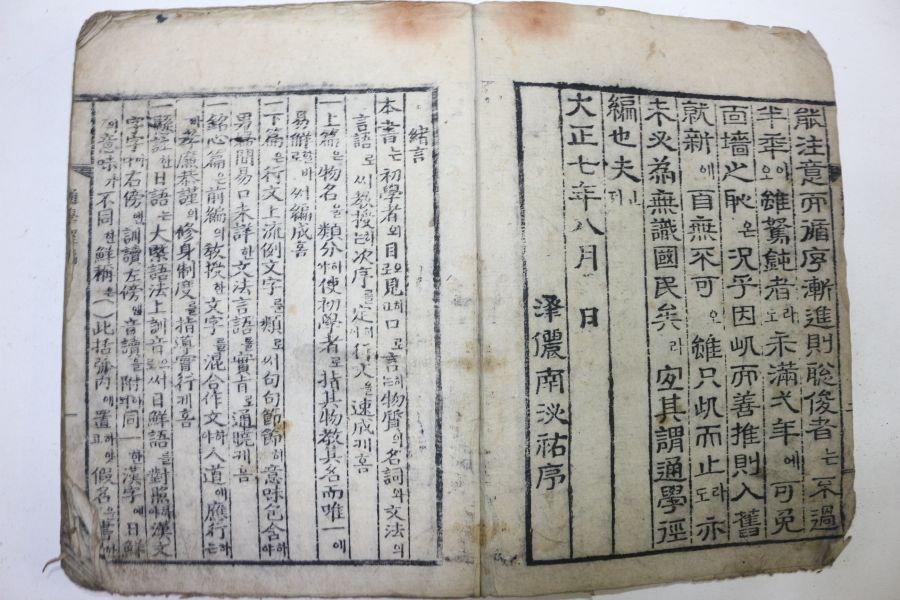 能注意而循序漸進則聡俊者는不過
半年이오雖駑鈍者라도未滿弌年에可免
面墻之恥온況乎因此而善推則入舊
就新에自無不可오雖只此而止라도亦
未必為無識國民矣리라宜其謂通學徑
編也夫인져
大正七年八月 日
澤儂南泌祐序
緖言
本書는初學者의目으로見하며口로言하는物質의名詞와文法의
言語로써敎授하는次序를定하야行人을速成케홈
一上篇은物名을類分하야使初學者로指其物敎其名而唯一에
易鮮로써編成홈
一下篇은行文上流例文字를類로써句句節節히意味包含하야
間易口未詳한文法言語를로通曉케홈
一銘心篇은前編의敎授한文字를混合作文하야人道에應行하는
孝廉恭謹의修身制度를指導實行케홈
一縣註한日語는大槩語法上訓音으로써日鮮語를對照하야漢文
字字마다右傍엔訓讀左傍엔音讀을附하되同一한漢字에日鮮
의意味가不同한鮮稱은( )此括弧內에置하고假名을書